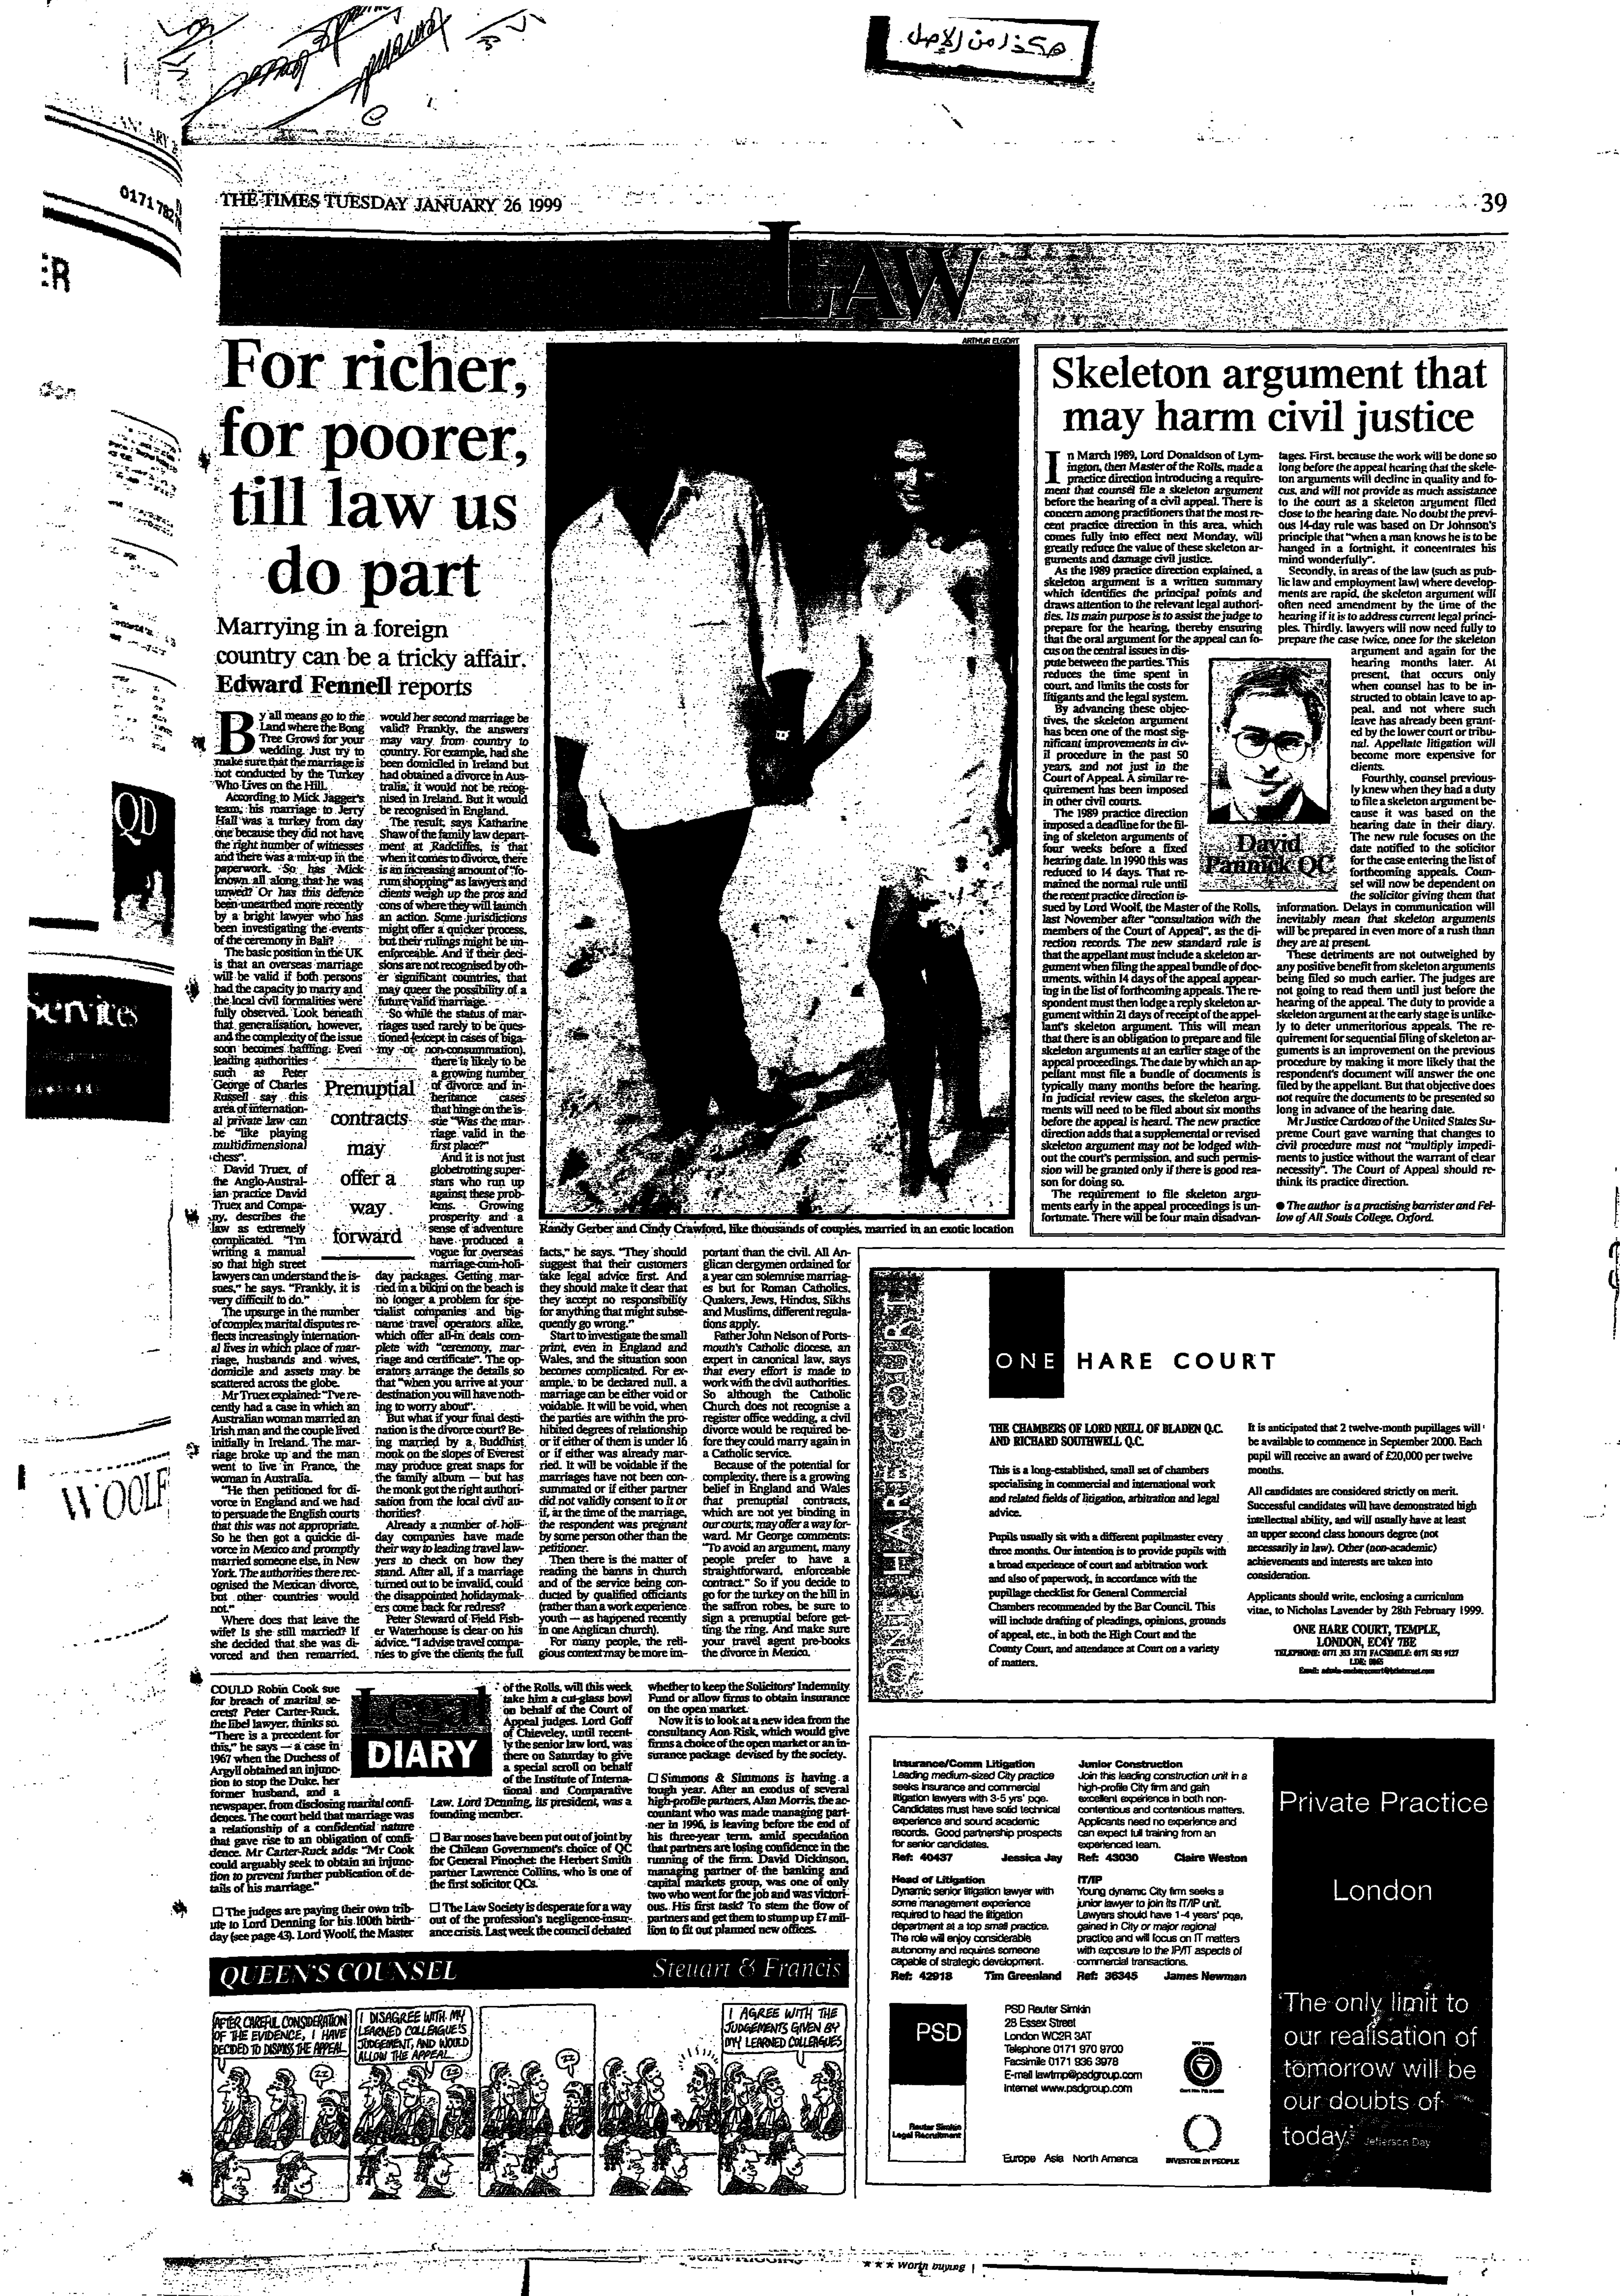 هكذا من الأصل
0171 782
THE TIMES TUESDAY JANUARY 26 1999
39
LAW
For richer,
for poorer,
till law us
do part
Marrying in a foreign
country can be a tricky affair.
Edward Fennell reports
By all means go to the
Land where the Bong
Tree Grows for your
wedding. Just try to
make sure that the marriage is
not conducted by the Turkey
Who Lives on the Hill.
According to Mick Jagger's
team, his marriage to Jerry
Hall was a turkey from day
one because they did not have
the right number of witnesses
and there was a mix-up in the
paperwork. So has Mick
known all along that he was
unwed? Or has this defence
been unearthed more recently
by a bright lawyer who has
been investigating the events
of the ceremony in Bali?
The basic position in the UK
is that an overseas marriage
will be valid if both persons
had the capacity to marry and
the local civil formalities were
fully observed. Look beneath
that generalisation, however,
and the complexity of the issue
soon becomes baffling. Even
leading authorities
such as Peter
George of Charles
Russell say this
area of internation-
al private law can
be "like playing
multidimensional
chess".
David Truex, of
the Anglo-Austral-
ian practice David
Truex and Compa-
ny, describes the
law as extremely
complicated. "I'm
writing a manual
so that high street
lawyers can understand the is-
sues," he says. "Frankly, it is
very difficult to do."
The upsurge in the number
of complex marital disputes re-
flects increasingly internation-
al lives in which place of mar-
riage, husbands and wives,
domicile and assets may be
scattered across the globe.
Mr Truex explained: "I've re-
cently had a case in which an
Australian woman married an
Irish man and the couple lived
initially in Ireland. The mar-
riage broke up and the man
went to live in France, the
woman in Australia.
"He then petitioned for di-
vorce in England and we had
to persuade the English courts
that this was not appropriate.
So he then got a quickie di-
vorce in Mexico and promptly
married someone else, in New
York. The authorities there rec-
ognised the Mexican divorce,
but other countries would
not."
Where does that leave the
wife? Is she still married? If
she decided that she was di-
vorced and then remarried,
would her second marriage be
valid? Frankly, the answers
may vary from country to
country. For example, had she
been domiciled in Ireland but
had obtained a divorce in Aus-
tralia, it would not be recog-
nised in Ireland. But it would
be recognised in England.
The result, says Katharine
Shaw of the family law depart-
ment at Radcliffes, is that
when it comes to divorce, there
is an increasing amount of "fo-
rum shopping" as lawyers and
clients weigh up the pros and
cons of where they will launch
an action. Some jurisdictions
might offer a quicker process,
but their rulings might be un-
enforceable. And if their deci-
sions are not recognised by oth-
er significant countries, that
may queer the possibility of a
future valid marriage.
So while the status of mar-
riages used rarely to be ques-
tioned (except in cases of biga-
my or non-consummation),
there is likely to be
a growing number
of divorce and in-
heritance cases
that hinge on the is-
sue "Was the mar-
riage valid in the
first place?"
And it is not just
globetrotting super-
stars who run up
against these prob-
lems. Growing
prosperity and a
sense of adventure
have produced a
vogue for overseas
marriage-cum-holi-
day packages. Getting mar-
ried in a bikini on the beach is
no longer a problem for spe-
cialist companies and big-
name travel operators alike,
which offer all-in deals com-
plete with "ceremony, mar-
riage and certificate". The op-
erators arrange the details so
that "when you arrive at your
destination you will have noth-
ing to worry about".
But what if your final desti-
nation is the divorce court? Be-
ing married by a Buddhist
monk on the slopes of Everest
may produce great snaps for
the family album — but has
the monk got the right authori-
sation from the local civil au-
thorities?
Already a number of holi-
day companies have made
their way to leading travel law-
yers to check on how they
stand. After all, if a marriage
turned out to be invalid, could
the disappointed holidaymak-
ers come back for redress?
Peter Steward of Field Fish-
er Waterhouse is clear on his
advice. "I advise travel compa-
nies to give the clients the full
Prenuptial
contracts
may
offer a
way
forward
ARTHUR ELGORT
Randy Gerber and Cindy Crawford, like thousands of couples, married in an exotic location
facts," he says. "They should
suggest that their customers
take legal advice first. And
they should make it clear that
they accept no responsibility
for anything that might subse-
quently go wrong."
Start to investigate the small
print, even in England and
Wales, and the situation soon
becomes complicated. For ex-
ample, to be declared null, a
marriage can be either void or
voidable. It will be void, when
the parties are within the pro-
hibited degrees of relationship
or if either of them is under 16
or if either was already mar-
ried. It will be voidable if the
marriages have not been con-
summated or if either partner
did not validly consent to it or
if, at the time of the marriage,
the respondent was pregnant
by some person other than the
petitioner.
Then there is the matter of
reading the banns in church
and of the service being con-
ducted by qualified officiants
(rather than a work experience
youth — as happened recently
in one Anglican church).
For many people, the reli-
gious context may be more im-
portant than the civil. All An-
glican clergymen ordained for
a year can solemnise marriag-
es but for Roman Catholics,
Quakers, Jews, Hindus, Sikhs
and Muslims, different regula-
tions apply.
Father John Nelson of Ports-
mouth's Catholic diocese, an
expert in canonical law, says
that every effort is made to
work with the civil authorities.
So although the Catholic
Church does not recognise a
register office wedding, a civil
divorce would be required be-
fore they could marry again in
a Catholic service.
Because of the potential for
complexity, there is a growing
belief in England and Wales
that prenuptial contracts,
which are not yet binding in
our courts, may offer a way for-
ward. Mr George comments:
"To avoid an argument, many
people prefer to have a
straightforward, enforceable
contract." So if you decide to
go for the turkey on the hill in
the saffron robes, be sure to
sign a prenuptial before get-
ting the ring. And make sure
your travel agent pre-books
the divorce in Mexico.
Skeleton argument that
may harm civil justice
In March 1989, Lord Donaldson of Lym-
ington, then Master of the Rolls, made a
practice direction introducing a require-
ment that counsel file a skeleton argument
before the hearing of a civil appeal. There is
concern among practitioners that the most re-
cent practice direction in this area, which
comes fully into effect next Monday, will
greatly reduce the value of these skeleton ar-
guments and damage civil justice.
As the 1989 practice direction explained, a
skeleton argument is a written summary
which identifies the principal points and
draws attention to the relevant legal authori-
ties. Its main purpose is to assist the judge to
prepare for the hearing, thereby ensuring
that the oral argument for the appeal can fo-
cus on the central issues in dis-
pute between the parties. This
reduces the time spent in
court, and limits the costs for
litigants and the legal system.
By advancing these objec-
tives, the skeleton argument
has been one of the most sig-
nificant improvements in civ-
il procedure in the past 50
years, and not just in the
Court of Appeal. A similar re-
quirement has been imposed
in other civil courts.
The 1989 practice direction
imposed a deadline for the fil-
ing of skeleton arguments of
four weeks before a fixed
hearing date. In 1990 this was
reduced to 14 days. That re-
mained the normal rule until
the recent practice direction is-
sued by Lord Woolf, the Master of the Rolls,
last November after "consultation with the
members of the Court of Appeal", as the di-
rection records. The new standard rule is
that the appellant must include a skeleton ar-
gument when filing the appeal bundle of doc-
uments, within 14 days of the appeal appear-
ing in the list of forthcoming appeals. The re-
spondent must then lodge a reply skeleton ar-
gument within 21 days of receipt of the appel-
lant's skeleton argument. This will mean
that there is an obligation to prepare and file
skeleton arguments at an earlier stage of the
appeal proceedings. The date by which an ap-
pellant must file a bundle of documents is
typically many months before the hearing.
In judicial review cases, the skeleton argu-
ments will need to be filed about six months
before the appeal is heard. The new practice
direction adds that a supplemental or revised
skeleton argument may not be lodged with-
out the court's permission, and such permis-
sion will be granted only if there is good rea-
son for doing so.
The requirement to file skeleton argu-
ments early in the appeal proceedings is un-
fortunate. There will be four main disadvan-
tages. First, because the work will be done so
long before the appeal hearing that the skele-
ton arguments will decline in quality and fo-
cus, and will not provide as much assistance
to the court as a skeleton argument filed
close to the hearing date. No doubt the previ-
ous 14-day rule was based on Dr Johnson's
principle that "when a man knows he is to be
hanged in a fortnight, it concentrates his
mind wonderfully".
Secondly, in areas of the law (such as pub-
lic law and employment law) where develop-
ments are rapid, the skeleton argument will
often need amendment by the time of the
hearing if it is to address current legal princi-
ples. Thirdly, lawyers will now need fully to
prepare the case twice, once for the skeleton
argument and again for the
hearing months later. At
present, that occurs only
when counsel has to be in-
structed to obtain leave to ap-
peal, and not where such
leave has already been grant-
ed by the lower court or tribu-
nal. Appellate litigation will
become more expensive for
clients.
Fourthly, counsel previous-
ly knew when they had a duty
to file a skeleton argument be-
cause it was based on the
hearing date in their diary.
The new rule focuses on the
date notified to the solicitor
for the case entering the list of
forthcoming appeals. Coun-
sel will now be dependent on
the solicitor giving them that
information. Delays in communication will
inevitably mean that skeleton arguments
will be prepared in even more of a rush than
they are at present.
These detriments are not outweighed by
any positive benefit from skeleton arguments
being filed so much earlier. The judges are
not going to read them until just before the
hearing of the appeal. The duty to provide a
skeleton argument at the early stage is unlike-
ly to deter unmeritorious appeals. The re-
quirement for sequential filing of skeleton ar-
guments is an improvement on the previous
procedure by making it more likely that the
respondent's document will answer the one
filed by the appellant. But that objective does
not require the documents to be presented so
long in advance of the hearing date.
Mr Justice Cardozo of the United States Su-
preme Court gave warning that changes to
civil procedure must not "multiply impedi-
ments to justice without the warrant of clear
necessity". The Court of Appeal should re-
think its practice direction.
● The author is a practising barrister and Fel-
low of All Souls College, Oxford.
David
Pannick QC
QD
Services
WOOLF
ONE HARE COURT
ONE HARE COURT
THE CHAMBERS OF LORD NEILL OF BLADEN Q.C.
AND RICHARD SOUTHWELL Q.C.
This is a long-established, small set of chambers
specialising in commercial and international work
and related fields of litigation, arbitration and legal
advice.
Pupils usually sit with a different pupilmaster every
three months. Our intention is to provide pupils with
a broad experience of court and arbitration work
and also of paperwork, in accordance with the
pupillage checklist for General Commercial
Chambers recommended by the Bar Council. This
will include drafting of pleadings, opinions, grounds
of appeal, etc., in both the High Court and the
County Court, and attendance at Court on a variety
of matters.
It is anticipated that 2 twelve-month pupillages will
be available to commence in September 2000. Each
pupil will receive an award of £20,000 per twelve
months.
All candidates are considered strictly on merit.
Successful candidates will have demonstrated high
intellectual ability, and will usually have at least
an upper second class honours degree (not
necessarily in law). Other (non-academic)
achievements and interests are taken into
consideration.
Applicants should write, enclosing a curriculum
vitae, to Nicholas Lavender by 28th February 1999.
ONE HARE COURT, TEMPLE,
LONDON, EC4Y 7BE
TELEPHONE: 0171 353 3171 FACSIMILE: 0171 583 9127
Legal
DIARY
COULD Robin Cook sue
for breach of marital se-
crets? Peter Carter-Ruck,
the libel lawyer, thinks so.
"There is a precedent for
this," he says — a case in
1967 when the Duchess of
Argyll obtained an injunc-
tion to stop the Duke, her
former husband, and a
newspaper, from disclosing marital confi-
dences. The court held that marriage was
a relationship of a confidential nature
that gave rise to an obligation of confi-
dence. Mr Carter-Ruck adds: "Mr Cook
could arguably seek to obtain an injunc-
tion to prevent further publication of de-
tails of his marriage."
□ The judges are paying their own trib-
ute to Lord Denning for his 100th birth-
day (see page 43). Lord Woolf, the Master
of the Rolls, will this week
take him a cut-glass bowl
on behalf of the Court of
Appeal judges. Lord Goff
of Chieveley, until recent-
ly the senior law lord, was
there on Saturday to give
a special scroll on behalf
of the Institute of Interna-
tional and Comparative
Law. Lord Denning, its president, was a
founding member.
□ Bar noses have been put out of joint by
the Chilean Government's choice of QC
for General Pinochet: the Herbert Smith
partner Lawrence Collins, who is one of
the first solicitor QCs.
□ The Law Society is desperate for a way
out of the profession's negligence-insur-
ance crisis. Last week the council debated
whether to keep the Solicitors' Indemnity
Fund or allow firms to obtain insurance
on the open market.
Now it is to look at a new idea from the
consultancy Aon Risk, which would give
firms a choice of the open market or an in-
surance package devised by the society.
□ Simmons & Simmons is having a
tough year. After an exodus of several
high-profile partners, Alan Morris, the ac-
countant who was made managing part-
ner in 1996, is leaving before the end of
his three-year term, amid speculation
that partners are losing confidence in the
running of the firm. David Dickinson,
managing partner of the banking and
capital markets group, was one of only
two who went for the job and was victori-
ous. His first task? To stem the flow of
partners and get them to stump up £7 mil-
lion to fit out planned new offices.
QUEEN'S COUNSEL
Steuart & Francis
AFTER CAREFUL CONSIDERATION
OF THE EVIDENCE, I HAVE
DECIDED TO DISMISS THE APPEAL
I DISAGREE WITH MY
LEARNED COLLEAGUE'S
JUDGEMENT, AND WOULD
ALLOW THE APPEAL
I AGREE WITH THE
JUDGEMENTS GIVEN BY
MY LEARNED COLLEAGUES
Insurance/Comm Litigation
Leading medium-sized City practice
seeks insurance and commercial
litigation lawyers with 3-5 yrs' pqe.
Candidates must have solid technical
experience and sound academic
records. Good partnership prospects
for senior candidates.
Ref: 40437 Jessica Jay
Junior Construction
Join this leading construction unit in a
high-profile City firm and gain
excellent experience in both non-
contentious and contentious matters.
Applicants need no experience and
can expect full training from an
experienced team.
Ref: 43030 Claire Weston
Head of Litigation
Dynamic senior litigation lawyer with
some management experience
required to head the litigation
department at a top small practice.
The role will enjoy considerable
autonomy and requires someone
capable of strategic development.
Ref: 42918 Tim Greenland
IT/IP
Young dynamic City firm seeks a
junior lawyer to join its IT/IP unit.
Lawyers should have 1-4 years' pqe,
gained in City or major regional
practice and will focus on IT matters
with exposure to the IP/IT aspects of
commercial transactions.
Ref: 36345 James Newman
PSD
Reuter Simkin
Legal Recruitment
PSD Reuter Simkin
28 Essex Street
London WC2R 3AT
Telephone 0171 970 9700
Facsimile 0171 936 3978
E-mail lawtmp@psdgroup.com
Internet www.psdgroup.com
Europe Asia North America
INVESTOR IN PEOPLE
Private Practice
London
'The only limit to
our realisation of
tomorrow will be
our doubts of
today.' Jefferson Day
★★★ Worth buying